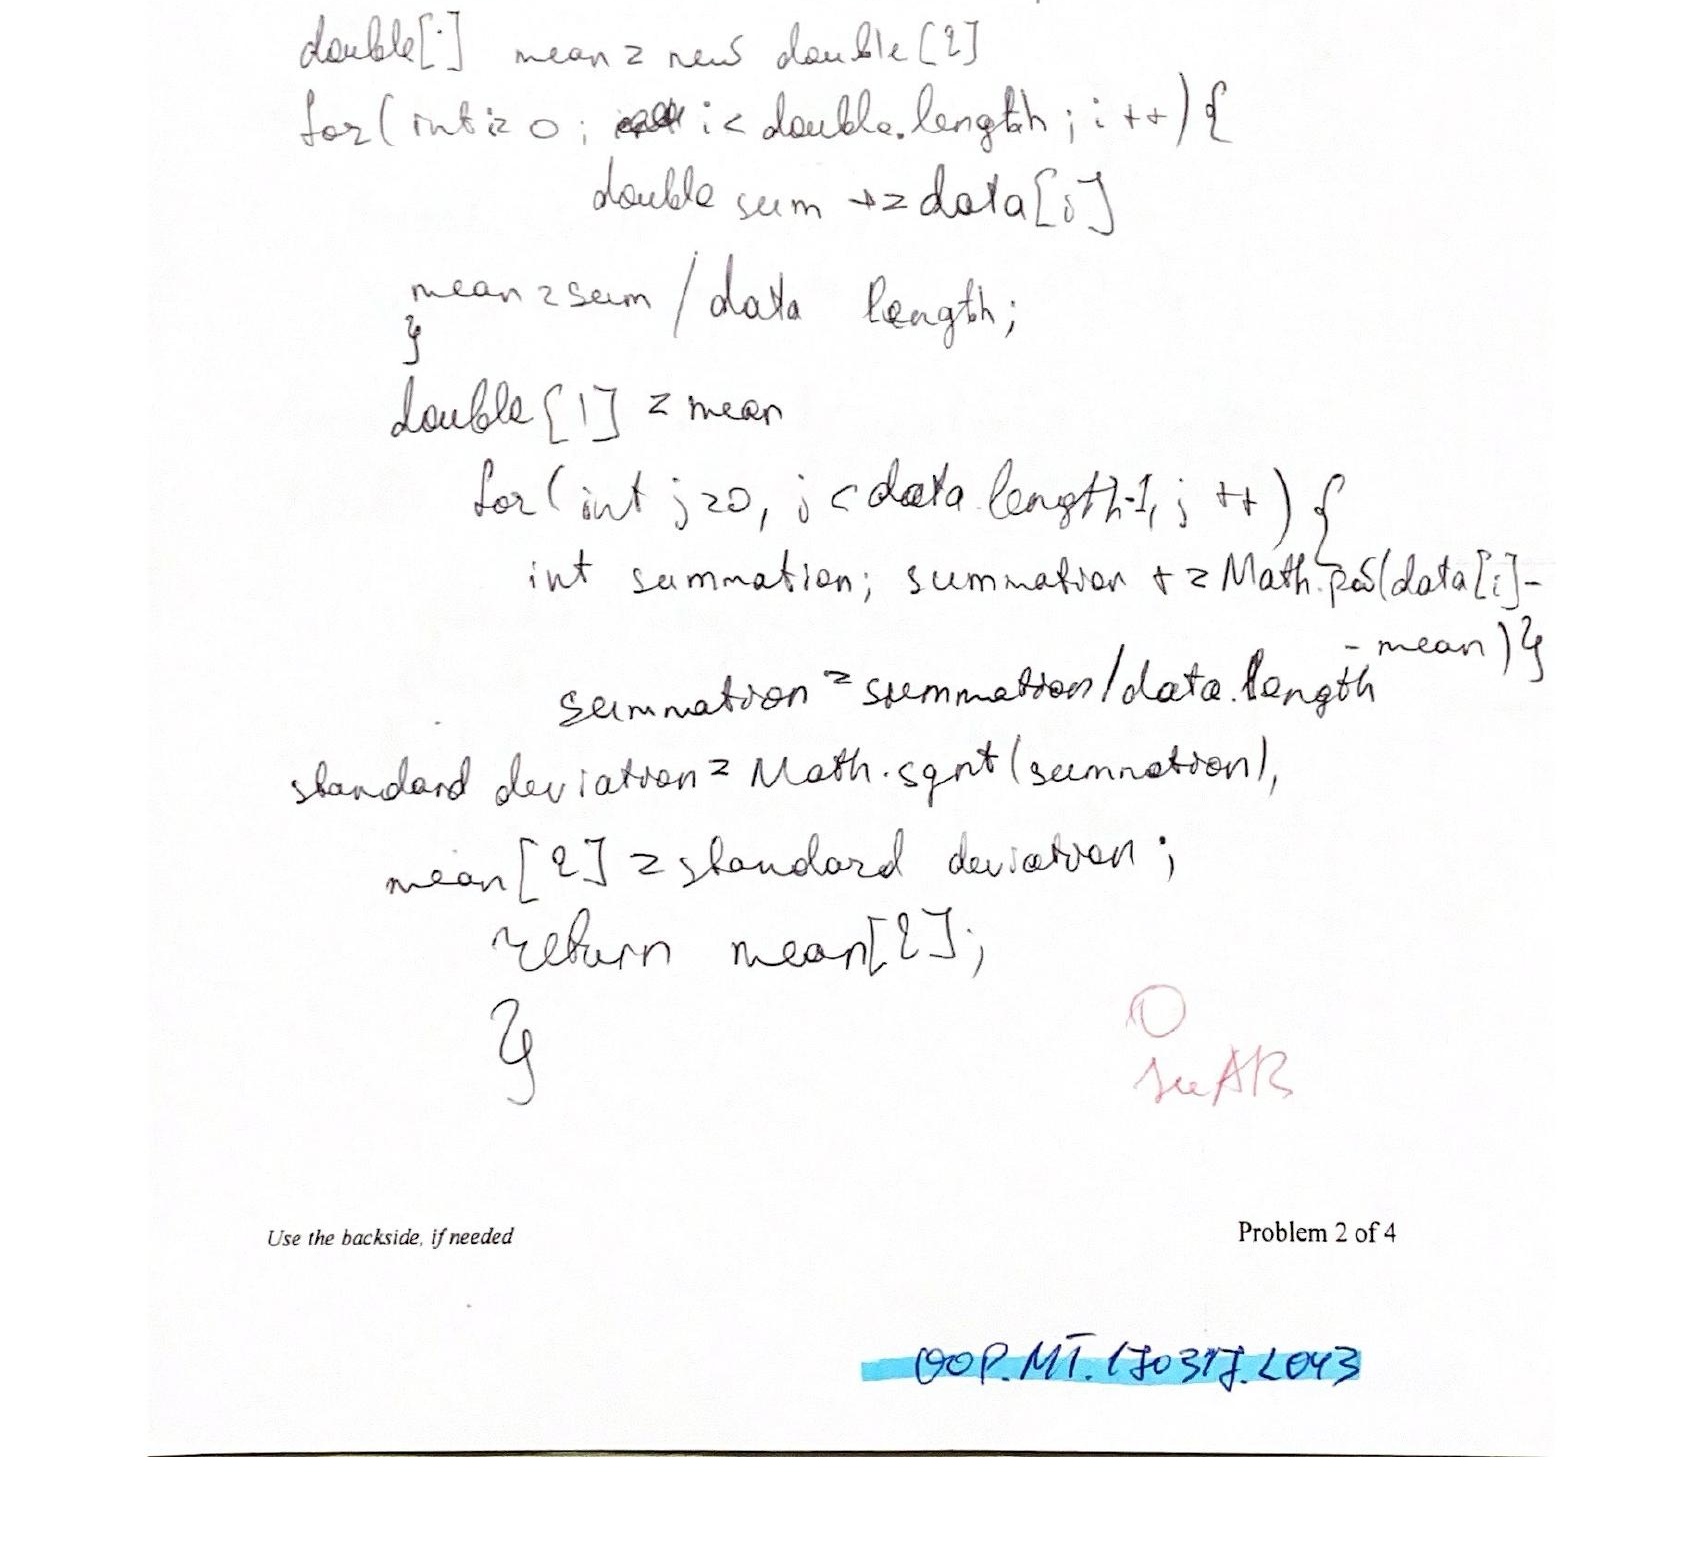 double[] mean = new double[2]
for(int i = 0; i < double.length; i++){
double sum += data[i]
mean = sum / data length;
}
double[1] = mean
for(int j = 0, j < data.length-1, j ++) {
int summation; summation += Math.pow(data[i]-
- mean)}
summation = summation/data.length
standard deviation = Math.sqrt(summation),
mean[2] = standard deviation;
return mean[2];
}
0
see AB
Use the backside, if needed
Problem 2 of 4
OOP.MT.170317.L043